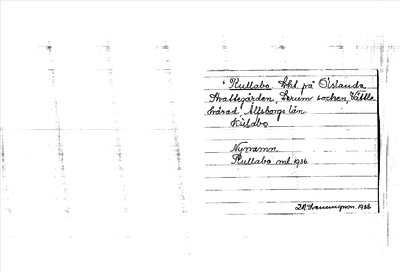 Kullabo. Lht på Öslanda
Skattegården, Lerum socken, Vättle
härad, Älfsborgs län.
Nynamn.
Kullabo ml. 1936.
1936